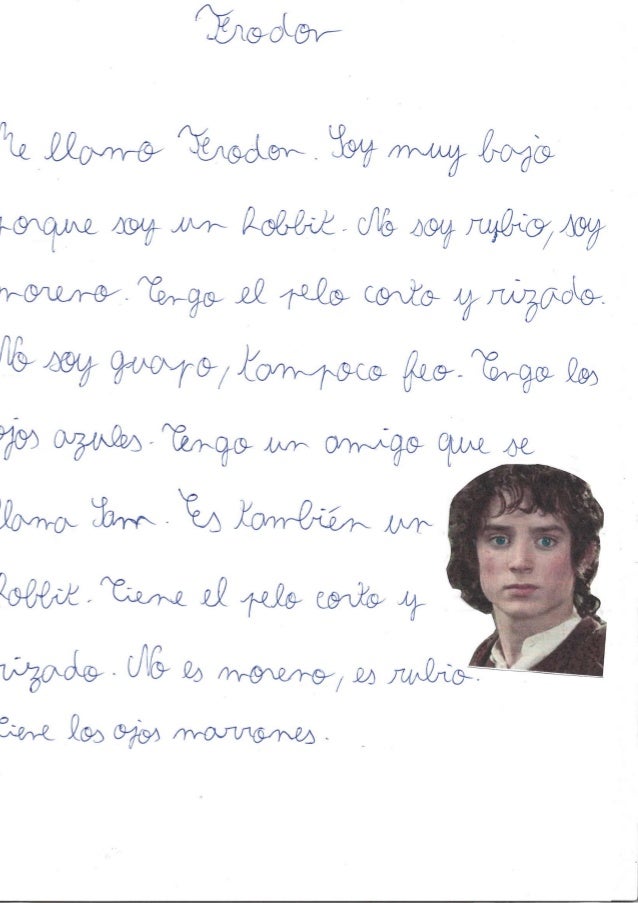 Frodon
Me llamo Frodon. Soy muy bajo
porque soy un hobbit. No soy rubio, soy
moreno. Tengo el pelo corto y rizado.
No soy guapo, tampoco feo. Tengo los
ojos azules. Tengo un amigo que se
llama Sam. Es también un
hobbit. Tiene el pelo corto y
rizado. No es moreno, es rubio.
Tiene los ojos marrones.